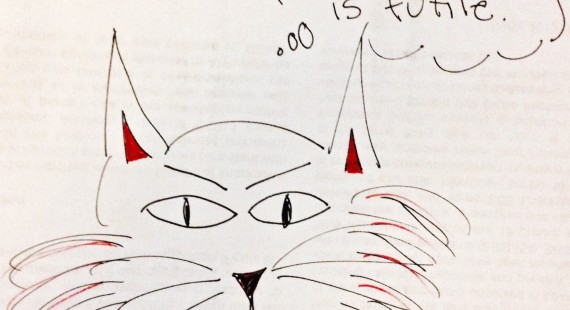 is futile.